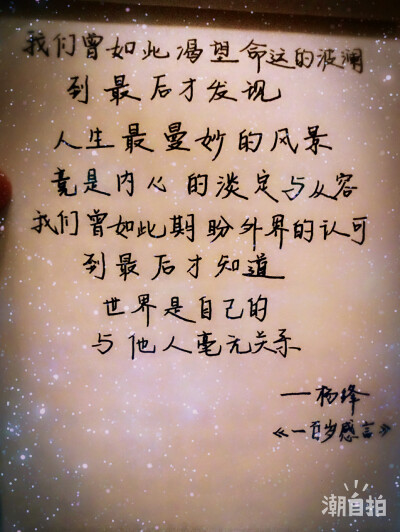 我们曾如此渴望命运的波澜
到最后才发现
人生最曼妙的风景
竟是内心的淡定与从容
我们曾如此期盼外界的认可
到最后才知道
世界是自己的
与他人毫无关系
——杨绛
《一百岁感言》
潮自拍